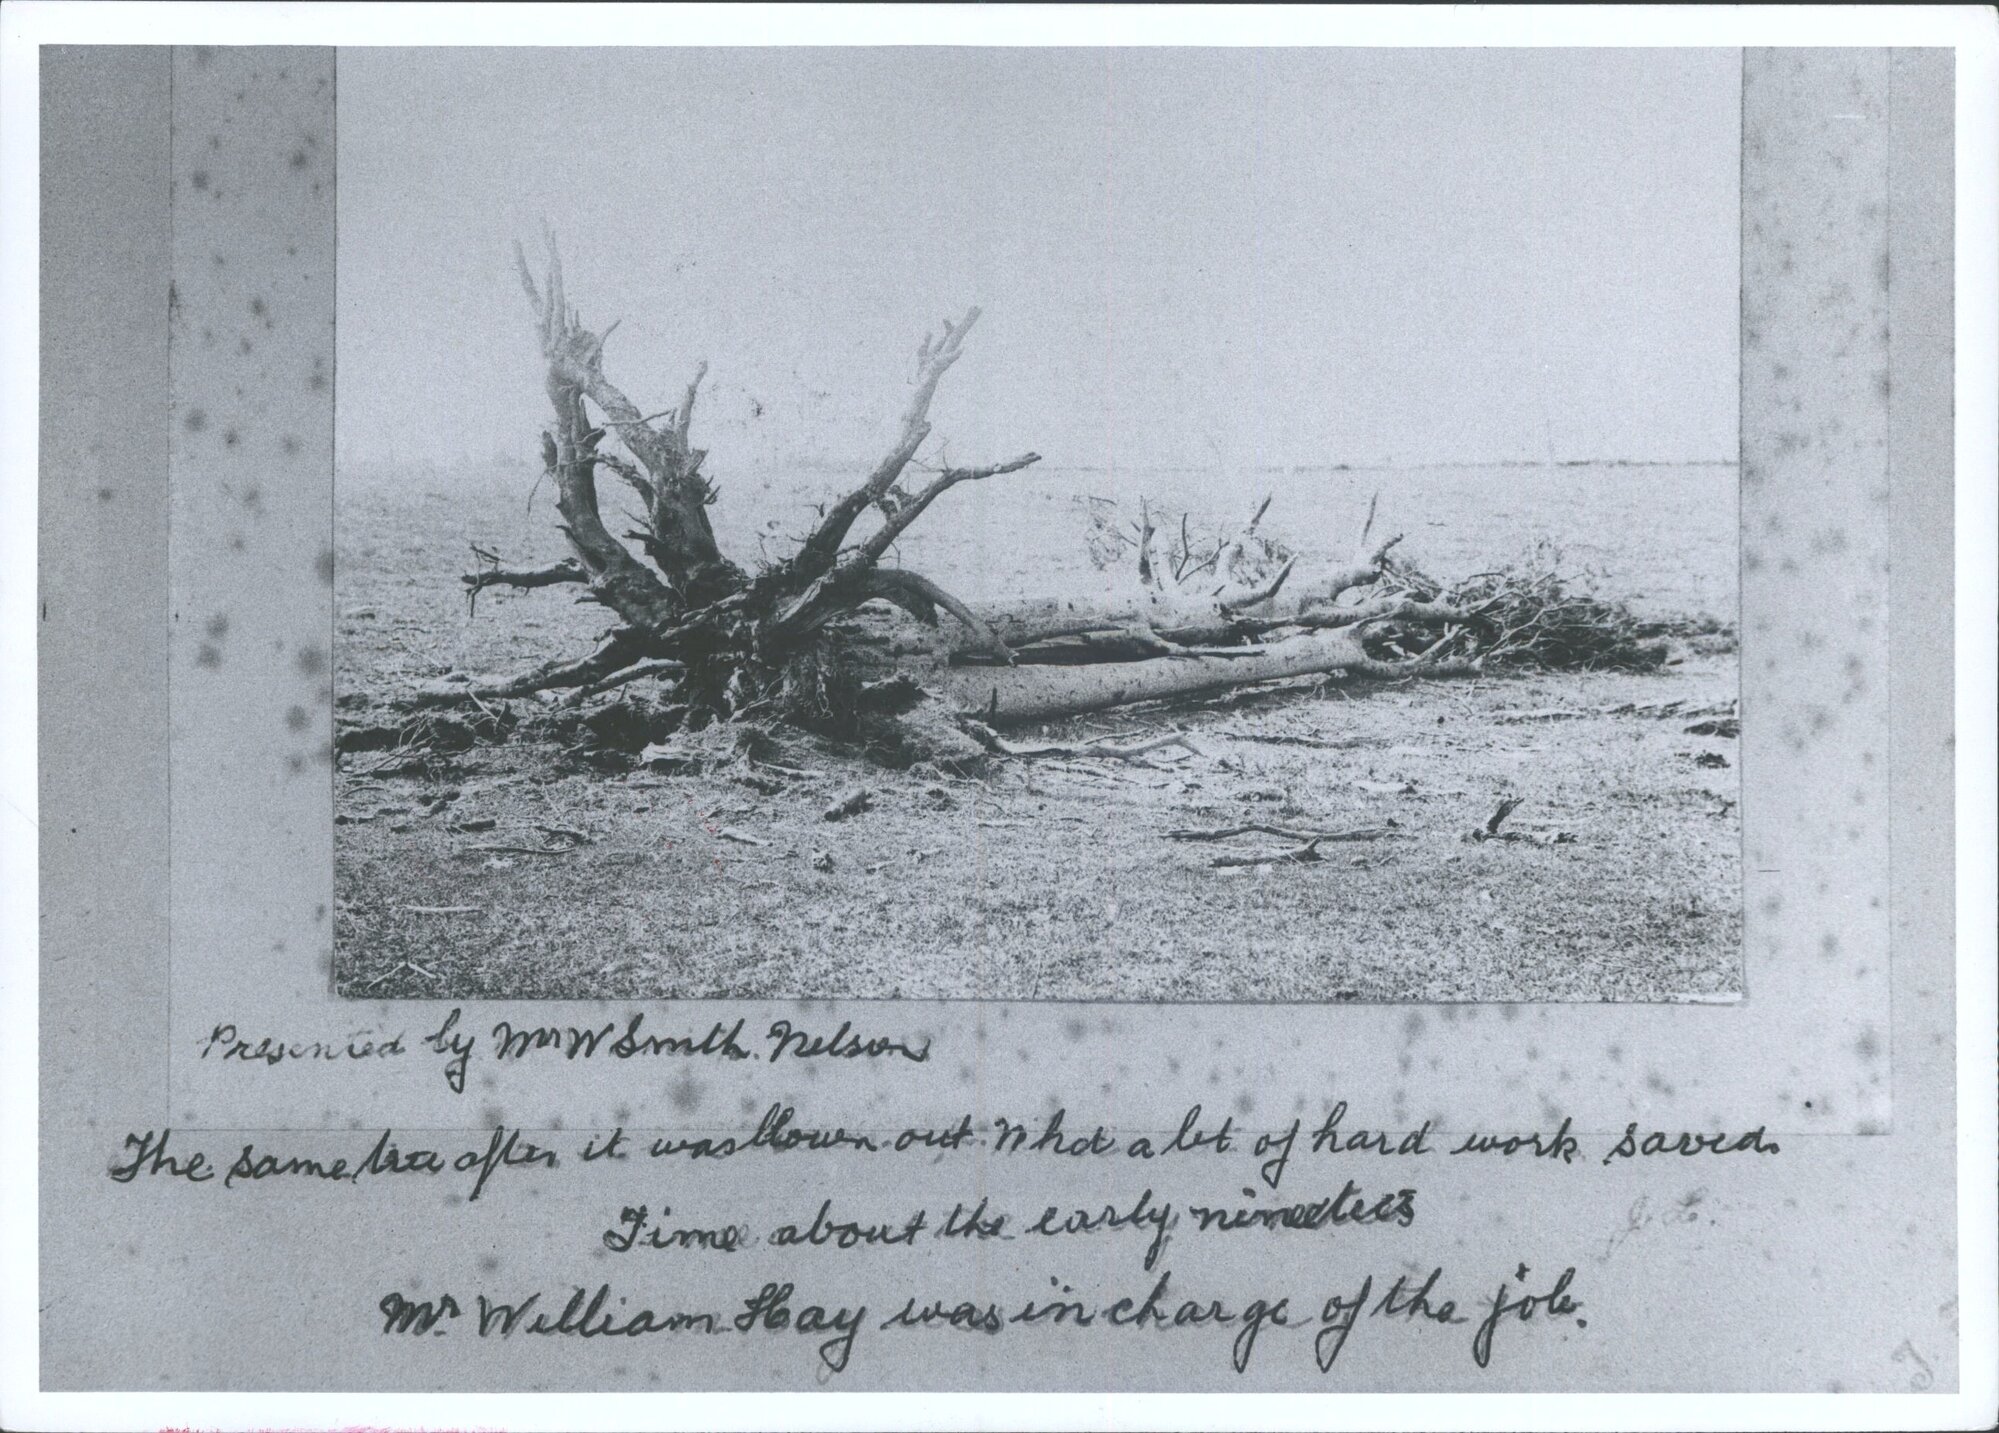 Presented by Mr W Smith. Nelson
The same tree after it was blown out. What a lot of hard work saved.
Time about the early ninetees
J.L.
Mr William Hay was in charge of the job.